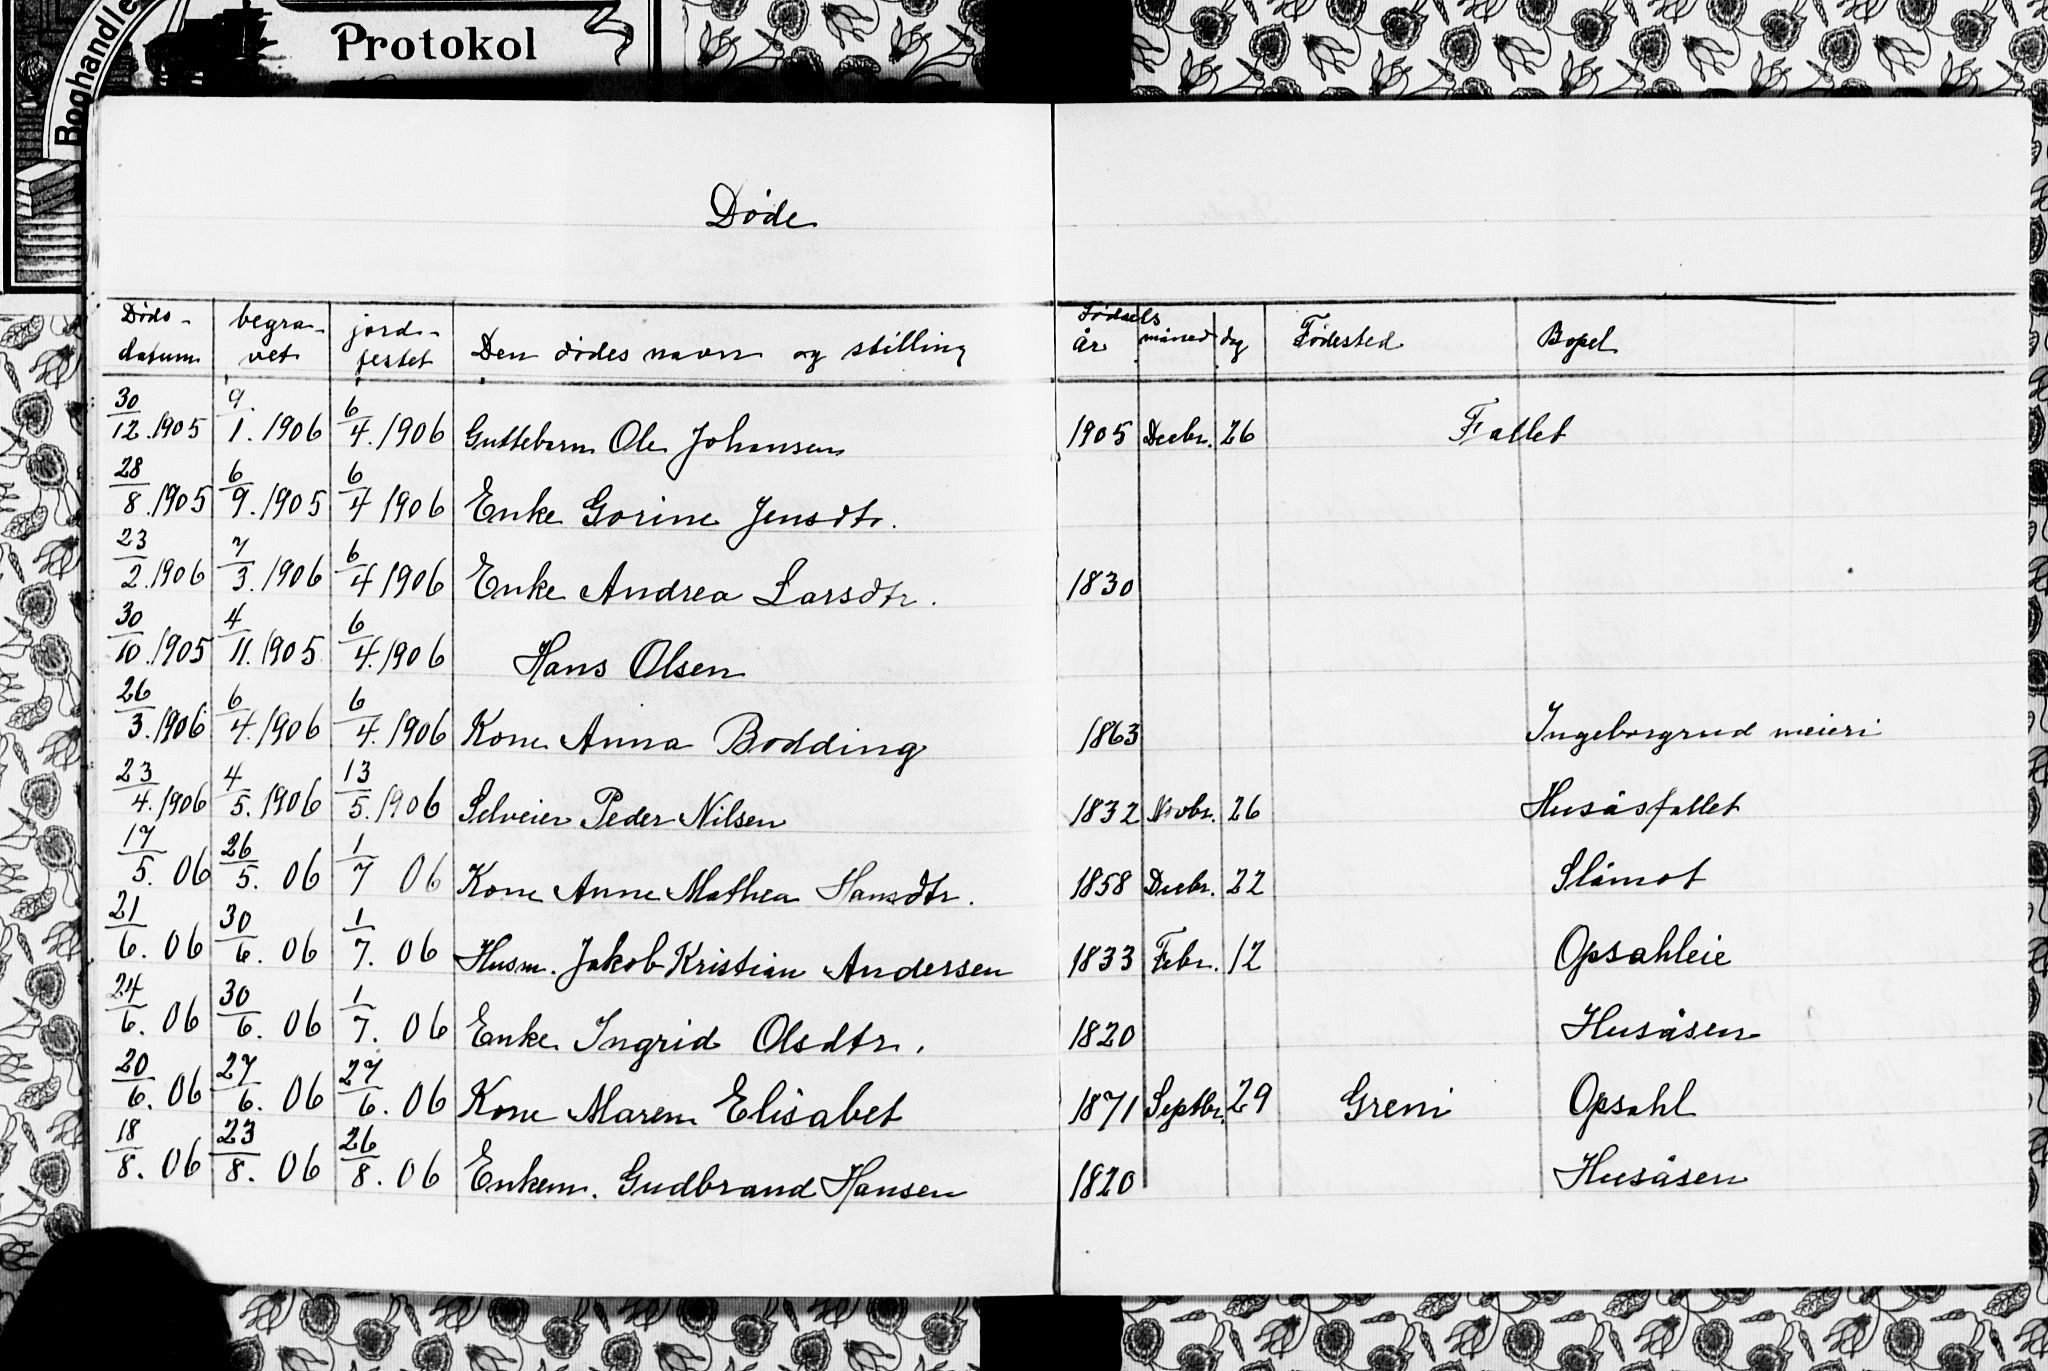 Boghandle
Protokol
Døde
Døds-datum begra-vet jord-festet Den dødes navn og stilling Fødsels år måned dag Fødested Bopel
30/12.1905 9/1.1906 6/4.1906 Guttebarn Ole Johansen 1905 Decbr. 26 Fallet
28/8.1905 6/9.1905 6/4 1906 Enke Gorine Jensdtr.
23/2.1906 7/3.1906 6/4 1906 Enke Andrea Larsdtr. 1830
30/10.1905 4/11.1905 6/4.1906 Hans Olsen
26/3.1906 6/4.1906 6/4.1906 Kone Anna Bodding 1863 Ingeborgrud meieri
23/4.1906 4/5.1906 13/5.1906 Selveier Peder Nilsen 1832 Novbr. 26 Husåsfallet
17/5. 06 26/5. 06 1/7 06 Kone Anne Mathea Hansdtr. 1858 Decbr. 22 Slåmot
21/6. 06 30/6. 06 1/7. 06 Husm. Jakob Kristian Andersen 1833 Febr. 12 Opsahleie
24/6. 06 30/6. 06 1/7. 06 Enke Ingrid Olsdtr. 1820 Husåsen
20/6. 06 27/6. 06 27/6. 06 Kone Maren Elisabet 1871 Septbr. 29 Greni Opsahl
18/8. 06 23/8. 06 26/8. 06 Enkem. Gudbrand Hansen 1820 Husåsen